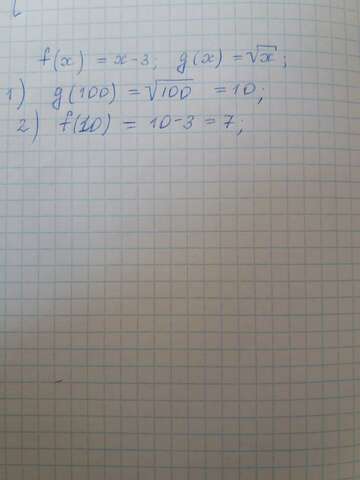 f(x) = x - 3; g(x) = √x;
1) g(100) = √100 = 10;
2) f(10) = 10 - 3 = 7;